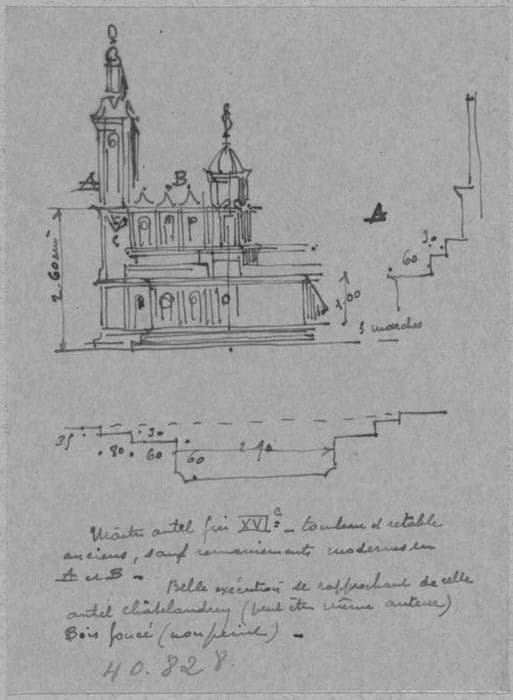 A
B
C
2.60 env
1.00
3 marches
A
30
60
35
80
30
60
60
2.90
Maître autel fin XVIe. _ tombeau et retable
anciens, sauf remaniements modernes en
A et B _
Belle exécution se rapprochant de celle
autel châtelaudren (peut être même auteur)
Bois foncé (non peint) _
40.828.